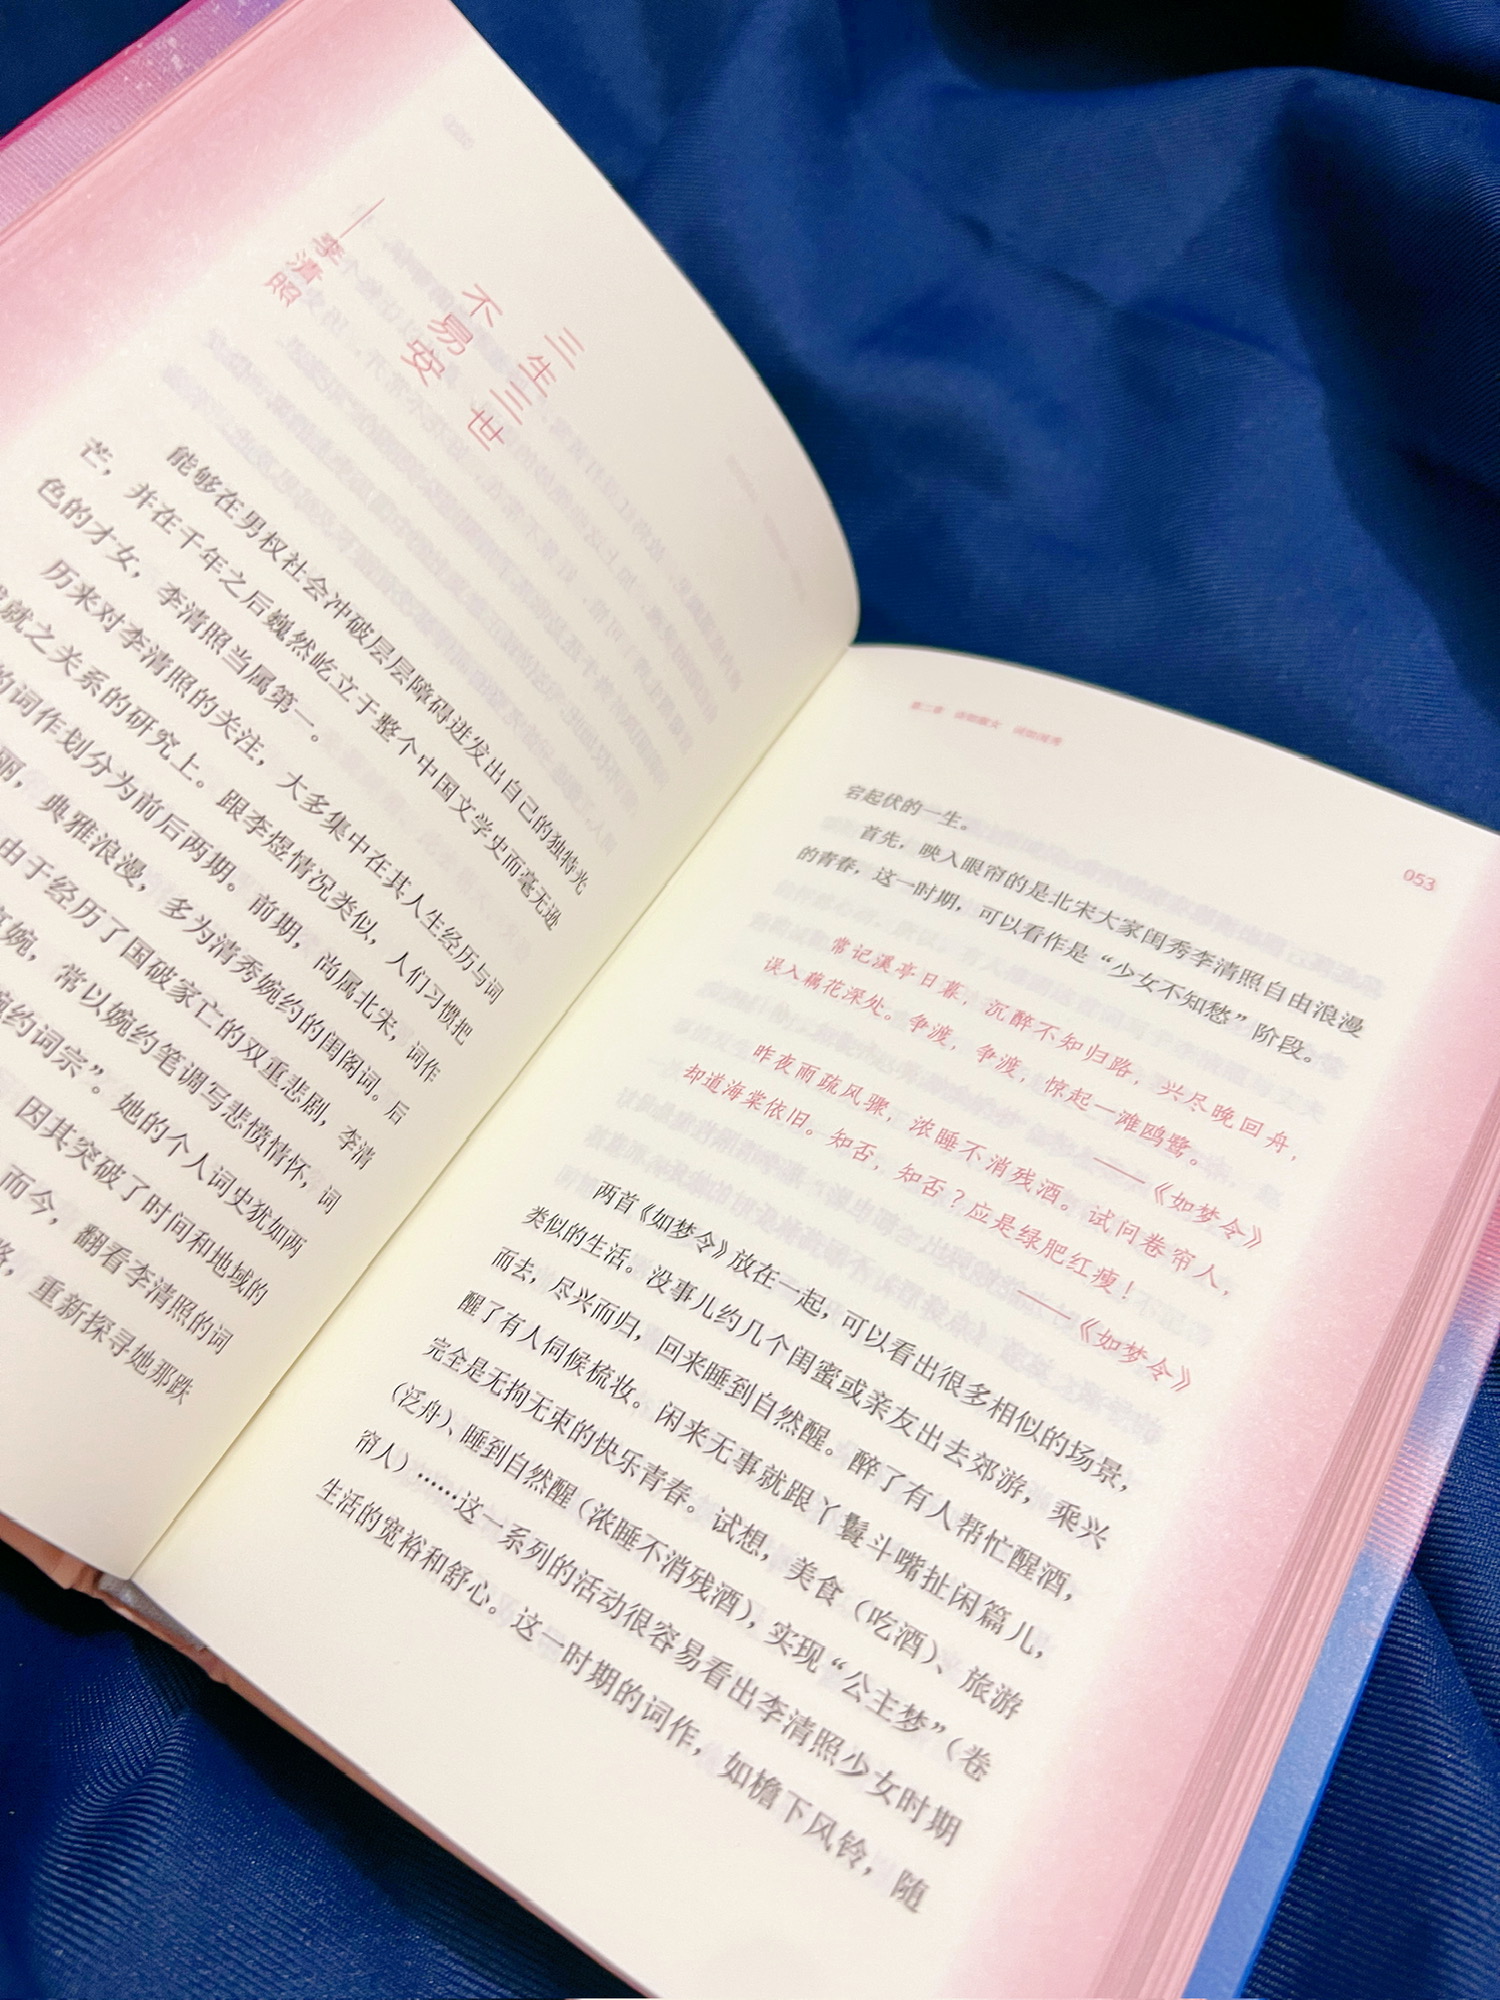 三生三世
不易安
——李清照
能够在男权社会冲破层层障碍迸发出自己的独特光
芒，并在千年之后巍然屹立于整个中国文学史而毫无逊
色的才女，李清照当属第一。
历来对李清照的关注，大多集中在其人生经历与词
就之关系的研究上。跟李煜情况类似，人们习惯把
的词作划分为前后两期。前期，尚属北宋，词作
丽，典雅浪漫，多为清秀婉约的闺阁词。后
由于经历了国破家亡的双重悲剧，李清
婉，常以婉约笔调写悲愤情怀，词
婉约词宗”。她的个人词史犹如两
因其突破了时间和地域的
而今，翻看李清照的词
，重新探寻她那跌
053
宕起伏的一生。
首先，映入眼帘的是北宋大家闺秀李清照自由浪漫
的青春，这一时期，可以看作是“少女不知愁”阶段。
常记溪亭日暮，沉醉不知归路，兴尽晚回舟，
误入藕花深处。争渡，争渡，惊起一滩鸥鹭。
——《如梦令》
昨夜雨疏风骤，浓睡不消残酒。试问卷帘人，
却道海棠依旧。知否，知否？应是绿肥红瘦！
——《如梦令》
两首《如梦令》放在一起，可以看出很多相似的场景，
类似的生活。没事儿约几个闺蜜或亲友出去郊游，乘兴
而去，尽兴而归，回来睡到自然醒。醉了有人帮忙醒酒，
醒了有人伺候梳妆。闲来无事就跟丫鬟斗嘴扯闲篇儿，
完全是无拘无束的快乐青春。试想，美食（吃酒）、旅游
（泛舟）、睡到自然醒（浓睡不消残酒），实现“公主梦”（卷
帘人）……这一系列的活动很容易看出李清照少女时期
生活的宽裕和舒心。这一时期的词作，如檐下风铃，随